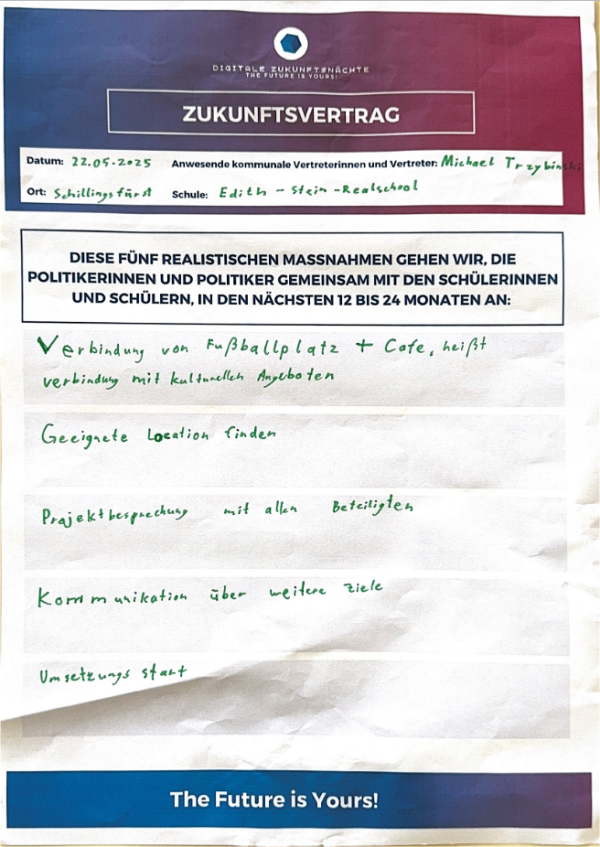 DIGITALE ZUKUNFTSNÄCHTE
THE FUTURE IS YOURS!
ZUKUNFTSVERTRAG
Datum: 22.05.2025 Anwesende kommunale Vertreterinnen und Vertreter: Michael Trzybinski
Ort: Schillingsfürst Schule: Edith - Stein - Realschool
DIESE FÜNF REALISTISCHEN MASSNAHMEN GEHEN WIR, DIE
POLITIKERINNEN UND POLITIKER GEMEINSAM MIT DEN SCHÜLERINNEN
UND SCHÜLERN, IN DEN NÄCHSTEN 12 BIS 24 MONATEN AN:
Verbindung von Fußballplatz + Cafe, heißt
verbindung mit kulturellen Angeboten
Geeignete Location finden
Projektbesprechung mit allen Beteiligten
Kommunikation über weitere Ziele
Umsetzungs start
The Future is Yours!